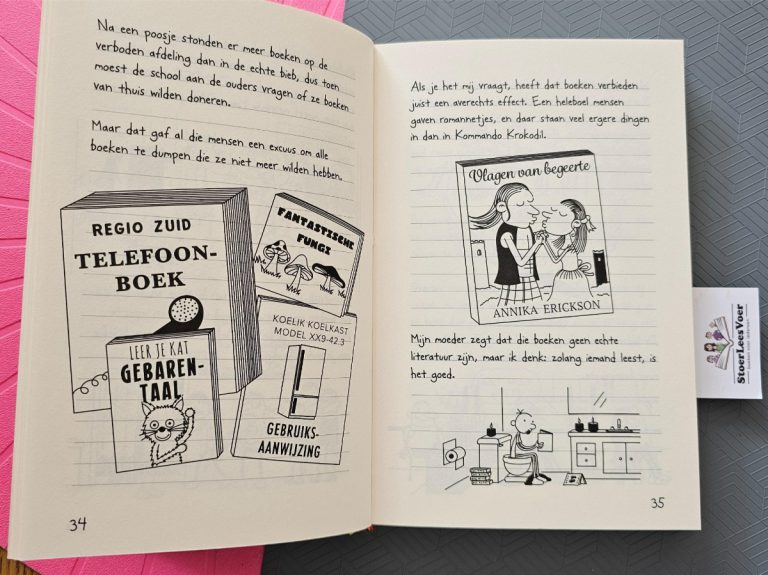 Na een poosje stonden er meer boeken op de
verboden afdeling dan in de echte bieb, dus toen
moest de school aan de ouders vragen of ze boeken
van thuis wilden doneren.
Maar dat gaf al die mensen een excuus om alle
boeken te dumpen die ze niet meer wilden hebben.
REGIO ZUID
TELEFOON-
BOEK
FANTASTISCHE
FUNGI
LEER JE KAT
GEBAREN-
TAAL
KOELIK KOELKAST
MODEL XX9-42.3
GEBRUIKS-
AANWIJZING
34
Als je het mij vraagt, heeft dat boeken verbieden
juist een averechts effect. Een heleboel mensen
gaven romannetjes, en daar staan veel ergere dingen
in dan in Kommando Krokodil.
Vlagen van begeerte
ANNIKA ERICKSON
Mijn moeder zegt dat die boeken geen echte
literatuur zijn, maar ik denk: zolang iemand leest, is
het goed.
35
StoerLeesVoer